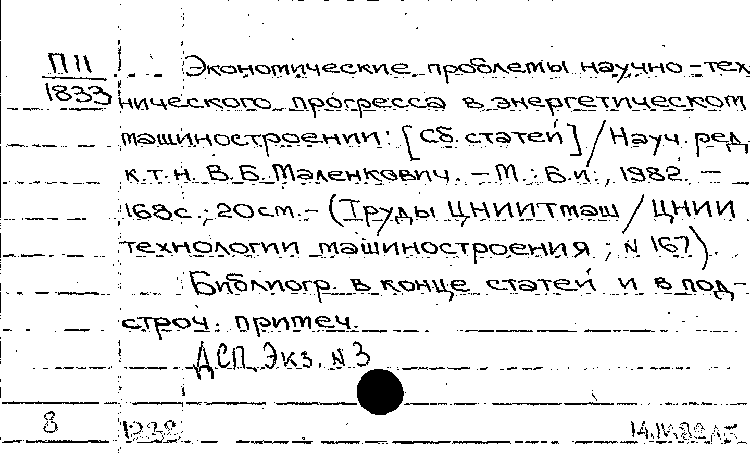 П II Экономические проблемы научно-тех
1833 нического прогресса в энергетическом
машиностроении: [Сб. статей] / Науч. ред.
к.т.н. В.Б. Маленкович. – М.: Б.и., 1982. –
168с.; 20см. – (Труды ЦНИИТмаш / ЦНИИ
технологии машиностроения; N 167).
Библиогр. в конце статей и в под-
строч. примеч.
ДСП Экз. N 3
8